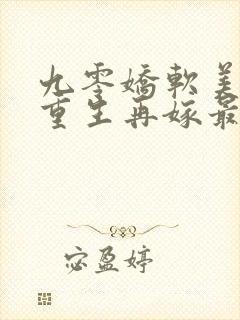 九零嬌軟美
重生再嫁最
宓盈婷